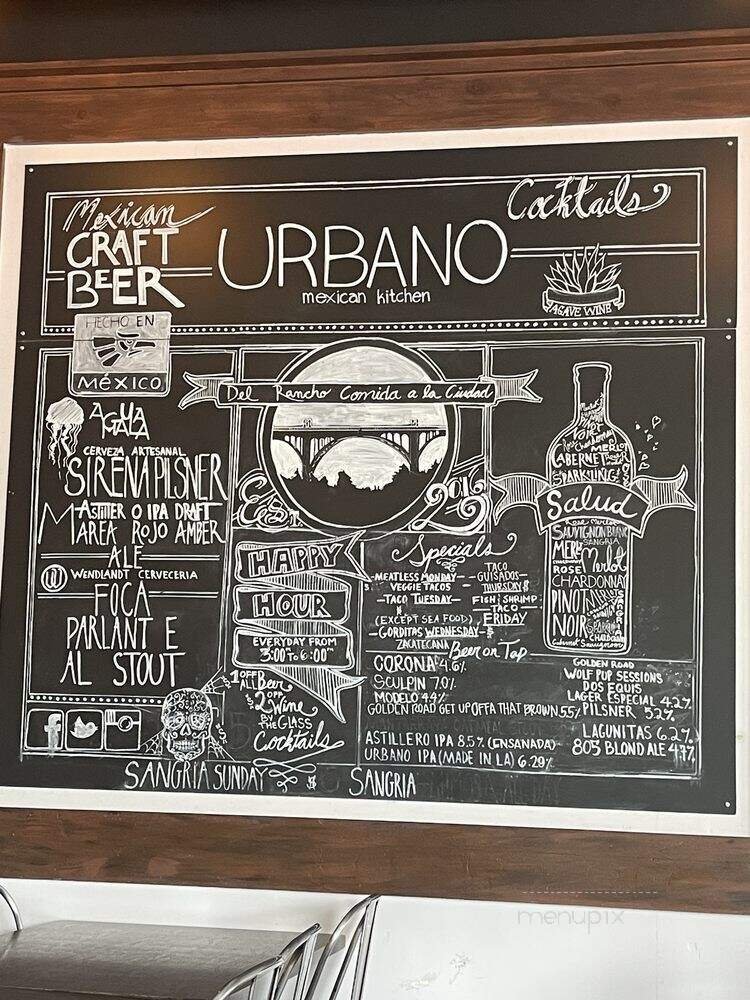 Mexican
CRAFT
BEER
URBANO
mexican kitchen
Cocktails
AGAVE WINE
HECHO EN
MÉXICO
Del Rancho Comida a la Ciudad
AGUA
MALA
CERVEZA ARTESANAL
SIRENA PILSNER
ASTILLERO IPA DRAFT
MAREA ROJO AMBER
ALE
WENDLANDT CERVECERIA
FOCA
PARLANT E
AL STOUT
Est
2015
HAPPY
HOUR
EVERYDAY FROM
3:00 TO 6:00 PM
$1 OFF
ALL BEER
$2 OFF
Wine
BY THE GLASS
Cocktails
Specials
MEATLESS MONDAY
VEGGIE TACOS
TACO TUESDAY
(EXCEPT SEA FOOD)
GORDITAS WEDNESDAY
ZACATECANA
TACO
GUISADOS
THURSDAY
FISH & SHRIMP
TACO
FRIDAY
Beer on Tap
CORONA 4.6%
SCULPIN 7.0%
MODELO 4.4%
GOLDEN ROAD GET UP OFFA THAT BROWN 5.5%
ASTILLERO IPA 8.5% (ENSANADA)
URBANO IPA (MADE IN LA) 6.29%
GOLDEN ROAD
WOLF PUP SESSIONS
DOS EQUIS
LAGER ESPECIAL 4.2%
PILSNER 5.2%
LAGUNITAS 6.2%
805 BLOND ALE 4.7%
Chardonnay
MERLOT
CABERNET
SPARKLING
Salud
SAUVIGNON BLANC
SANGRIA
MERLOT
Merlot
ROSE
CHARDONNAY
PINOT
NOIR
SANGRIA
Cabernet Sauvignon
SANGRIA SUNDAY
SANGRIA
menupix